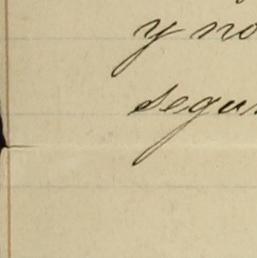 y no
segu